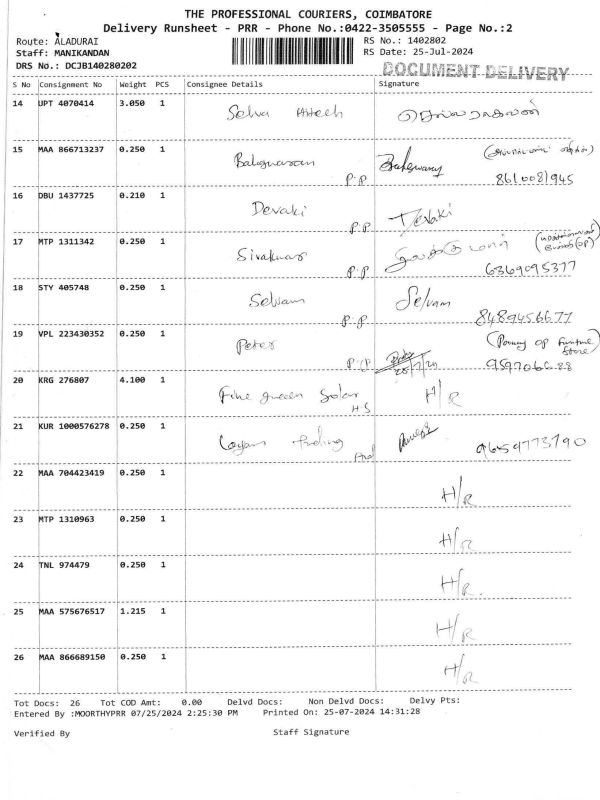 THE PROFESSIONAL COURIERS, COIMBATORE
Delivery Runsheet - PRR - Phone No.:0422-3505555 - Page No.:2
Route: ALADURAI
RS No.: 1402802
Staff: MANIKANDAN
RS Date: 25-Jul-2024
DRS No.: DCJB140280202
DOCUMENT DELIVERY
S No Consignment No Weight PCS Consignee Details Signature
14 UPT 4070414 3.050 1 Selva
15 MAA 866713237 0.250 1 P.P 8610081945
16 DBU 1437725 0.210 1 Devaki P.P Devaki
17 MTP 1311342 0.250 1 Sivakumar P.P 6369095377
18 STY 405748 0.250 1 Selvam P.P Selvam 8489456677
19 VPL 223430352 0.250 1 Peter P.P Store)
20 KRG 276807 4.100 1 Fine green Solar H S H/R
21 KUR 1000576278 0.250 1 9659773790
22 MAA 704423419 0.250 1 H/R
23 MTP 1310963 0.250 1 H/R
24 TNL 974479 0.250 1 H/R.
25 MAA 575676517 1.215 1 H/R
26 MAA 866689150 0.250 1 H/R
Tot Docs: 26 Tot COD Amt: 0.00 Delvd Docs: Non Delvd Docs: Delvy Pts:
Entered By :MOORTHYPRR 07/25/2024 2:25:30 PM Printed On: 25-07-2024 14:31:28
Verified By Staff Signature